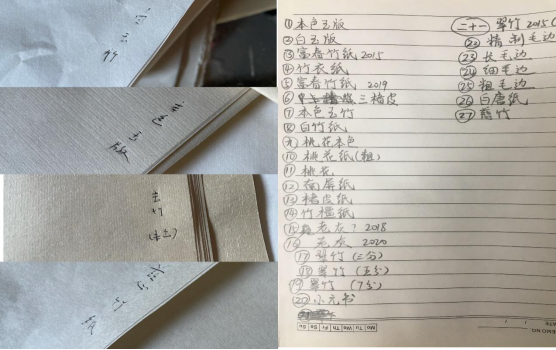 玉竹
玉版
玉竹
(本色)
①本色玉版
②白玉版
③富春竹纸 2015
④竹衣纸
⑤富春竹纸 2019
⑥三桠皮
⑦本色玉竹
⑧白竹纸
⑨桃花本色
⑩桃花纸(粗)
⑪桃花
⑫南屏纸
⑬楮皮纸
⑭竹檀纸
⑮老灰? 2018
⑯元灰 2020
⑰翠竹(三分)
⑱翠竹(五分)
⑲翠竹(7分)
⑳小元书
二十一 翠竹 2015
㉒精制毛边
㉓长毛边
㉔细毛边
㉕粗毛边
㉖白唐纸
㉗
Mo Tu We Th Fr Sa Su